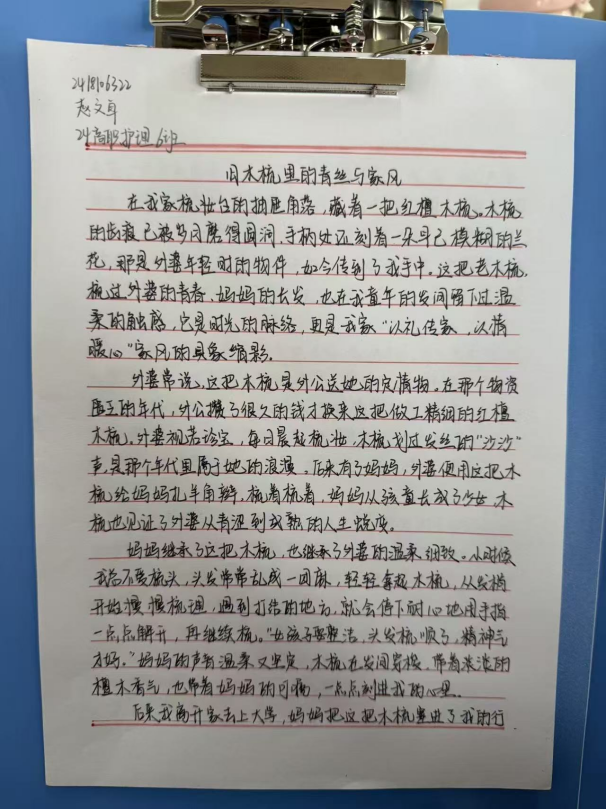 2418106322
赵文卓
24高职护理6班
旧木梳里的青丝与家风
在我家梳妆台的抽屉角落，藏着一把红檀木梳。木梳
的齿痕已被岁月磨得圆润，手柄处还刻着一朵早已模糊的兰
花，那是外婆年轻时的物件，如今传到了我手中。这把老木梳，
梳过外婆的青春、妈妈的长发，也在我童年的发间留下过温
柔的触感，它是时光的脉络，更是我家“以礼传家，以情
暖心”家风的具象缩影。
外婆常说，这把木梳是外公送她的定情物。在那个物资
匮乏的年代，外公攒了很久的钱才换来这把做工精细的红檀
木梳。外婆视若珍宝，每日晨起梳妆，木梳划过发丝的“沙沙”
声，是那个年代里属于她的浪漫。后来有了妈妈，外婆便用这把木
梳给妈妈扎羊角辫，梳着梳着，妈妈从孩童长成了少女，木
梳也见证了外婆从青涩到成熟的人生蜕变。
妈妈继承了这把木梳，也继承了外婆的温柔细致。小时候
我总不爱梳头，头发常常乱成一团麻，轻轻拿起木梳，从发梢
开始慢慢梳理，遇到打结的地方，就会停下耐心地用手指
一点点解开，再继续梳。“女孩子要整洁，头发梳顺了，精神气
才好。”妈妈的声音温柔又坚定，木梳在发间穿梭，带着淡淡的
檀木香气，也带着妈妈的叮嘱，一点点刻进我的心里。
后来我离开家去上大学，妈妈把这把木梳塞进了我的行